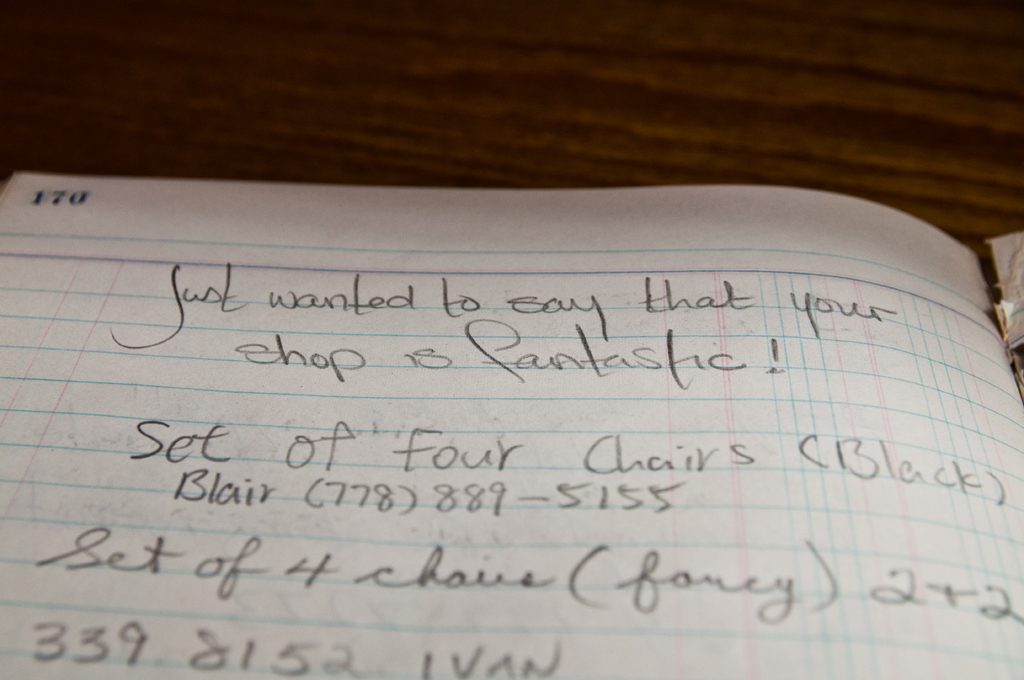 170
Just wanted to say that your
shop is fantastic!
Set of Four Chairs (Black)
Blair (778) 889-5155
Set of 4 chairs (fancy) 2+2
339 8152 IVAN